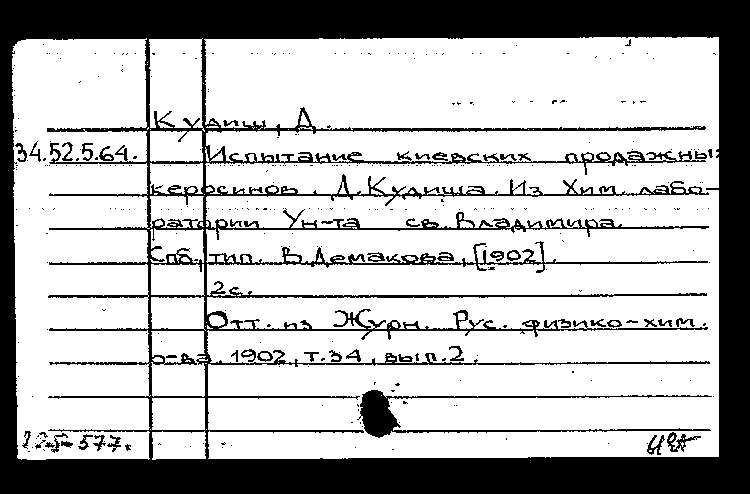 Кудиш, Д.
34.52.5.64. Испытание киевских продажны
керосинов. Д. Кудиша. Из Хим. лабо-
ратории Ун-та св. Владимира.
Спб, тип. В. Демакова, [1902].
2 с.
Отт. из Журн. Рус. физико-хим.
о-ва. 1902, т. 34, вып. 2.
577.